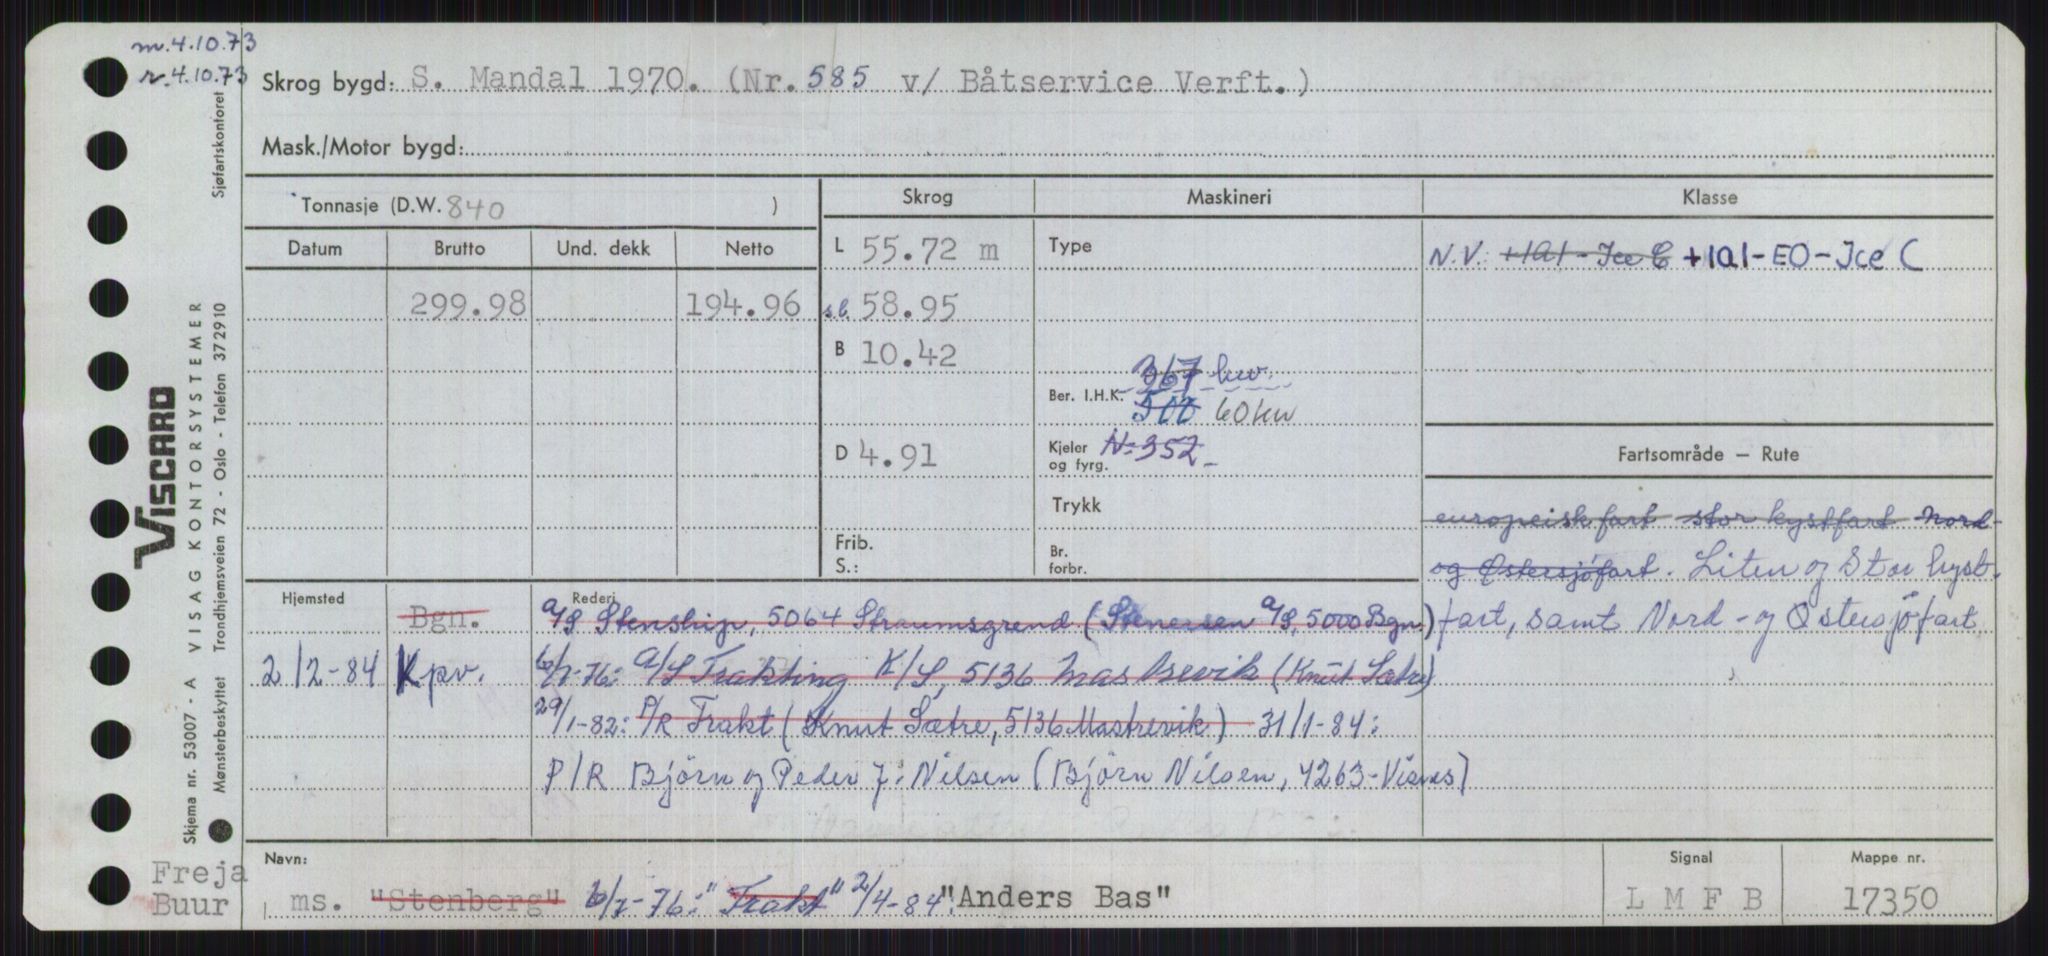 m. 4.10.73
r. 4.10.73
Skrog bygd: S. Mandal 1970. (Nr. 585 v/ Båtservice Verft.)
Mask./Motor bygd:
Tonnasje (D.W. 840 )
Skrog Maskineri Klasse
Datum Brutto Und. dekk Netto
L 55.72 m
Type
N.V. +1A1-Ice C +1A1-EO-Ice C
299.98 194.96
s.l. 58.95
B 10.42
367 kw.
Ber. I.H.K. 500 60 kw
D 4.91
Kjeler og fyrg. N-352
Fartsområde — Rute
Trykk
europeisk fart stor kystfart Nord-
Frib.
S.:
Br. forbr.
og Østersjøfart. Liten og Stor kyst-
fart, samt Nord- og Østersjøfart
Hjemsted Rederi
Bgn. A/S Stenship, 5064 Straumsgrend (Stenersen A/S, 5000 Bgn.)
2/2-84 Kpv. 6/7-76: A/S Trakting K/S, 5136 Mastrevik (Knut Sætre)
29/1-82: P/R Trakt (Knut Sætre, 5136 Mastrevik) 31/1-84:
P/R Björn og Peder J. Nilsen (Björn Nilsen, 4263-Visnes)
Navn: Signal Mappe nr.
ms. "Stenberg" 6/7-76: "Trakt" 2/4-84: "Anders Bas" LMFB 17350
Freja
Buur
VISCARD
Skjema nr. 53007 - A VISAG KONTORSYSTEMER
Mønsterbeskyttet Trondhjemsveien 72 - Oslo - Telefon 372910
Sjøfartskontoret